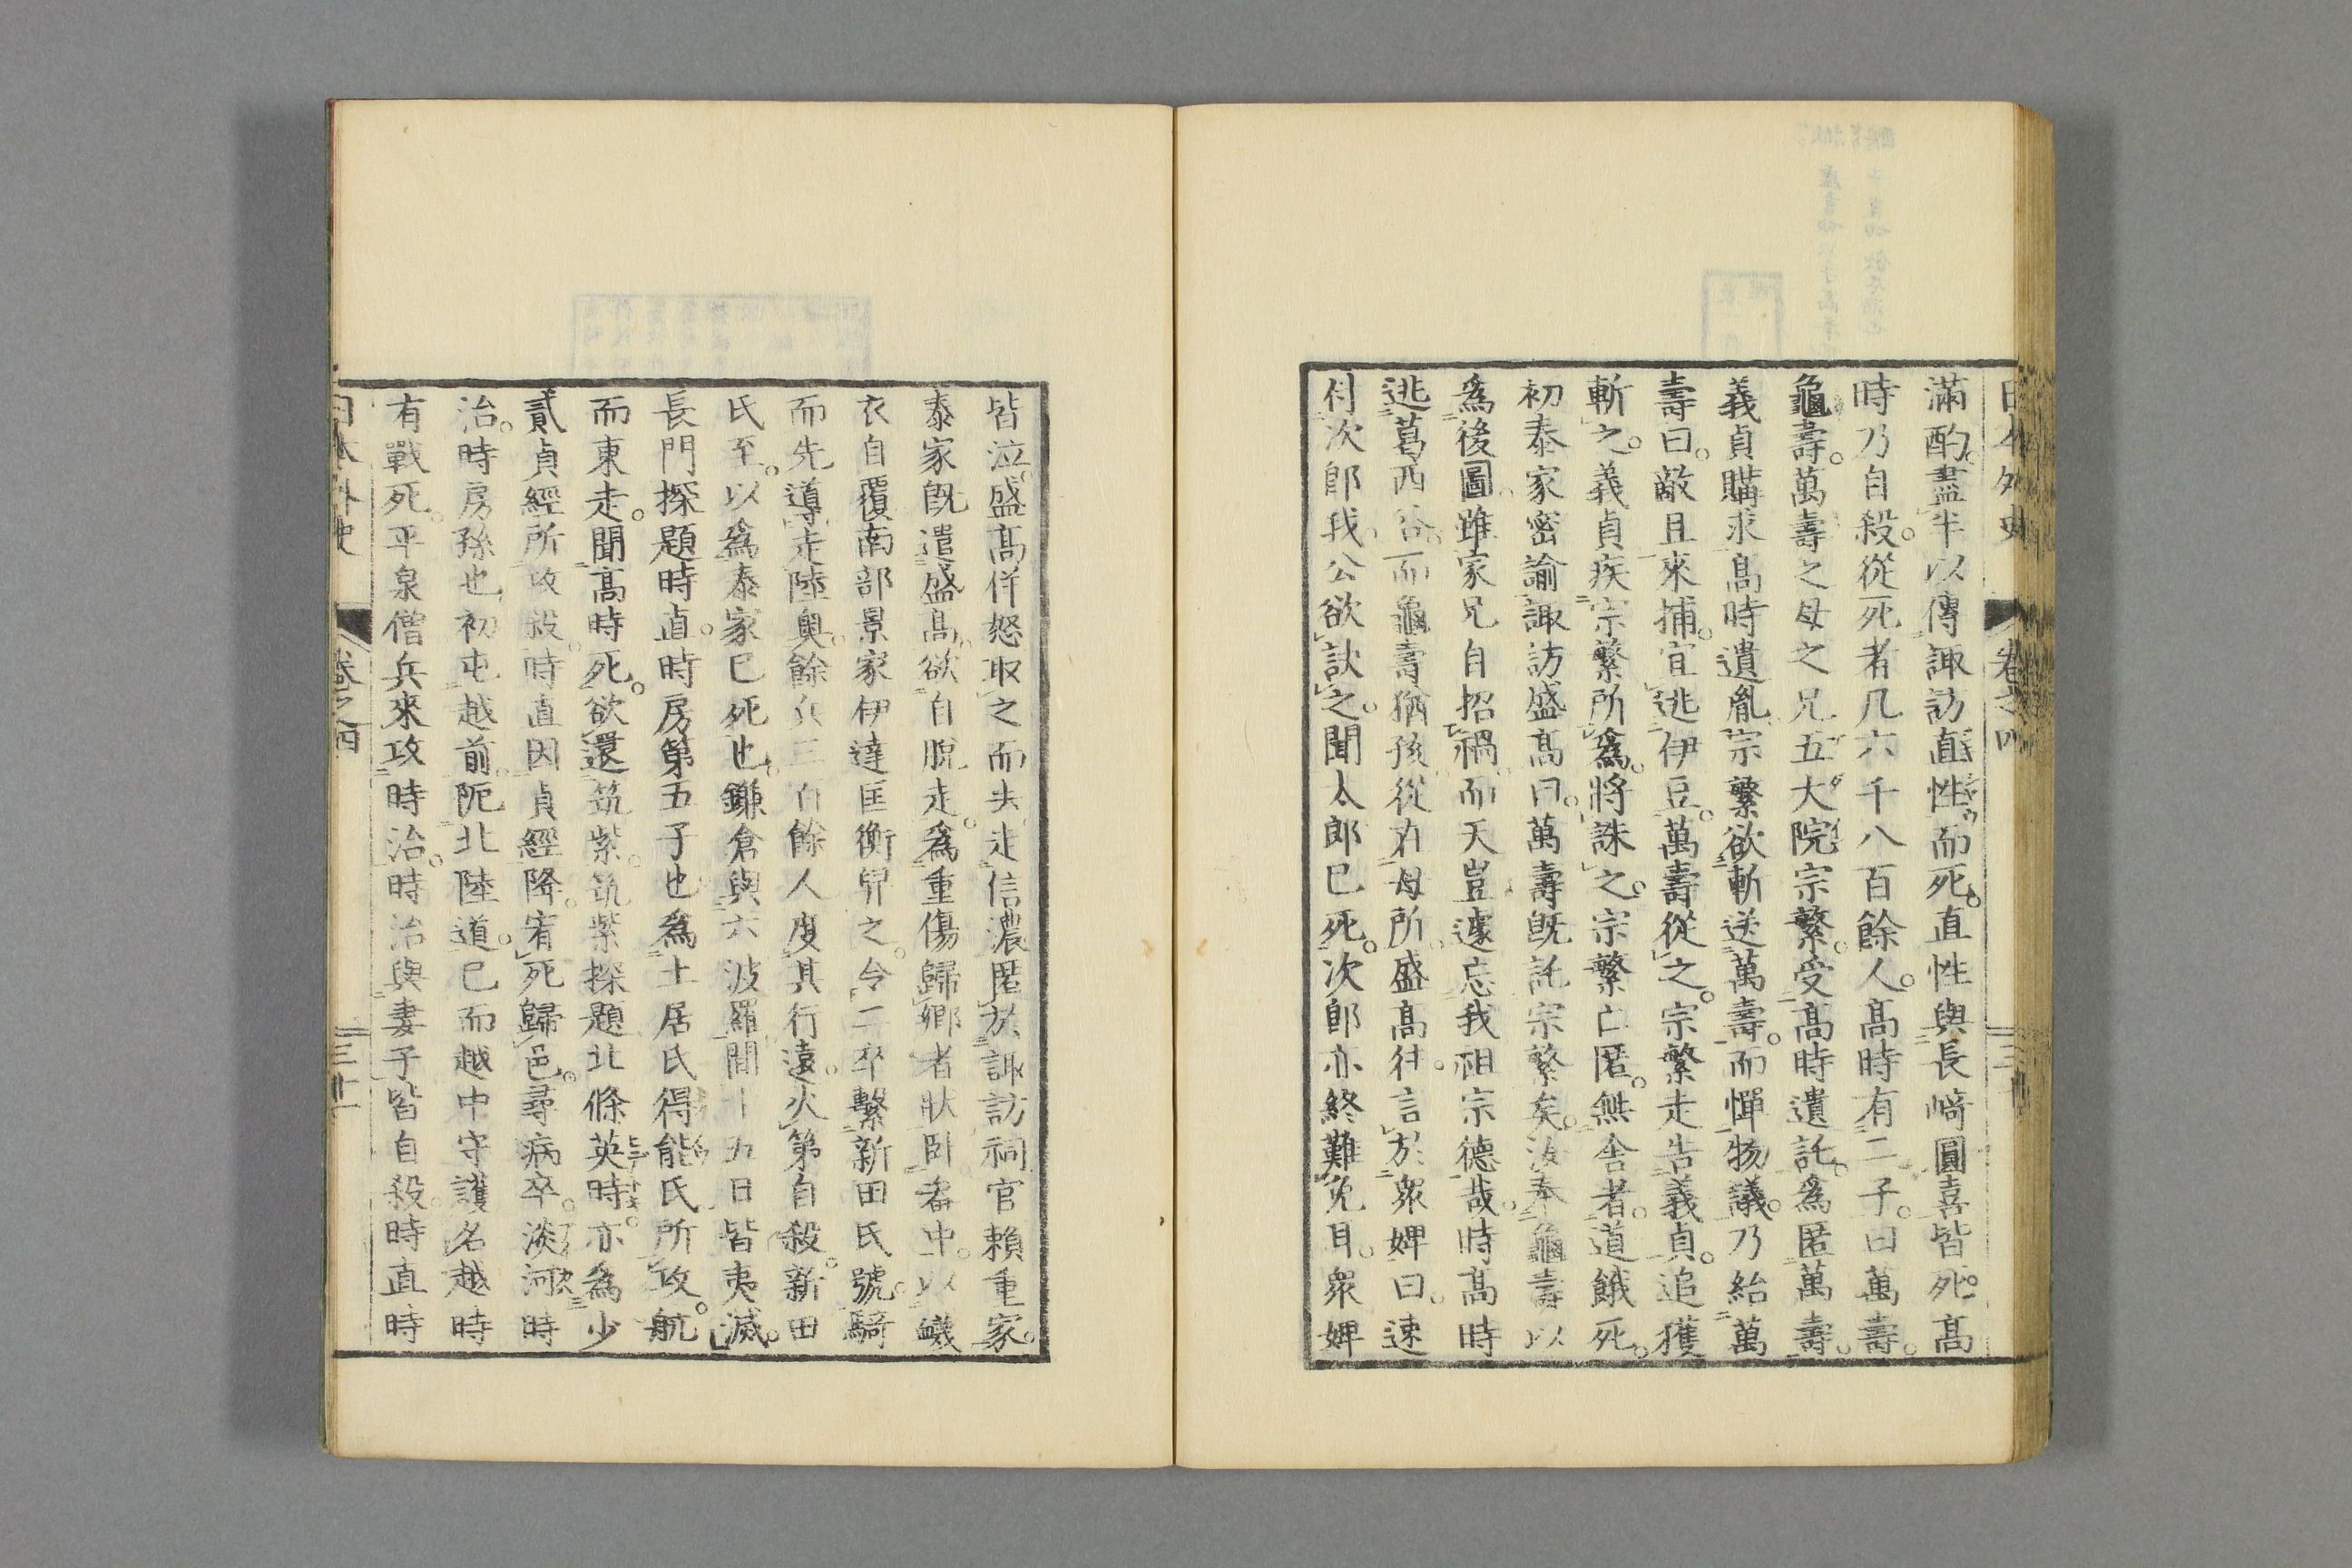 日本外史 卷之四 三十
滿酌。盡半以傳諏訪直性而死。直性與長崎圓喜皆死。高
時乃自殺。從死者凡六千八百餘人。高時有二子。曰萬壽。
龜壽。萬壽之母之兄五大院宗繁。受高時遺託。爲匿萬壽。
義貞購求高時遺胤。宗繁欲斬送萬壽。而憚物議。乃紿萬
壽曰。敵且來捕。宜逃伊豆。萬壽從之。宗繁走告義貞。追獲
斬之。義貞疾宗繁所爲。將誅之。宗繁亡匿。無舎者。道餓死。
初泰家密諭諏訪盛高曰。萬壽既託宗繁矣。汝奉龜壽以
爲後圖。雖家兄自招禍。而天豈遽忘我祖宗德哉。時高時
逃葛西谷。而龜壽猶孩從在母所。盛高往。言於衆婢曰。速
付次郎我。公欲訣之。聞太郎已死。次郎亦終難免耳。衆婢
皆泣。盛高佯怒取之而去。走信濃匿於諏訪祠官賴重家。
泰家既遣盛高。欲自脫走。爲重傷歸鄉者狀。臥畚中。以衊
衣自覆。南部景家伊達匡衡舁之。令二卒繫新田氏號。騎
而先導。走陸奧。餘兵三百餘人。度其行遠。火第自殺。新田
氏至。以爲泰家已死也。鎌倉與六波羅間十五日皆夷滅。
長門探題時直。時房第五子也。爲土居氏得能氏所攻。航
而東走。聞高時死。欲還筑紫。筑紫探題北條英時。亦爲少
貳貞經所攻殺。時直因貞經降。宥死歸邑。尋病卒。淡河時
治。時房孫也。初屯越前。阨北陸道。已而越中守護名越時
有戰死。平泉僧兵來攻時治。時治與妻子皆自殺。時直時
日本外史 卷之四 三十一